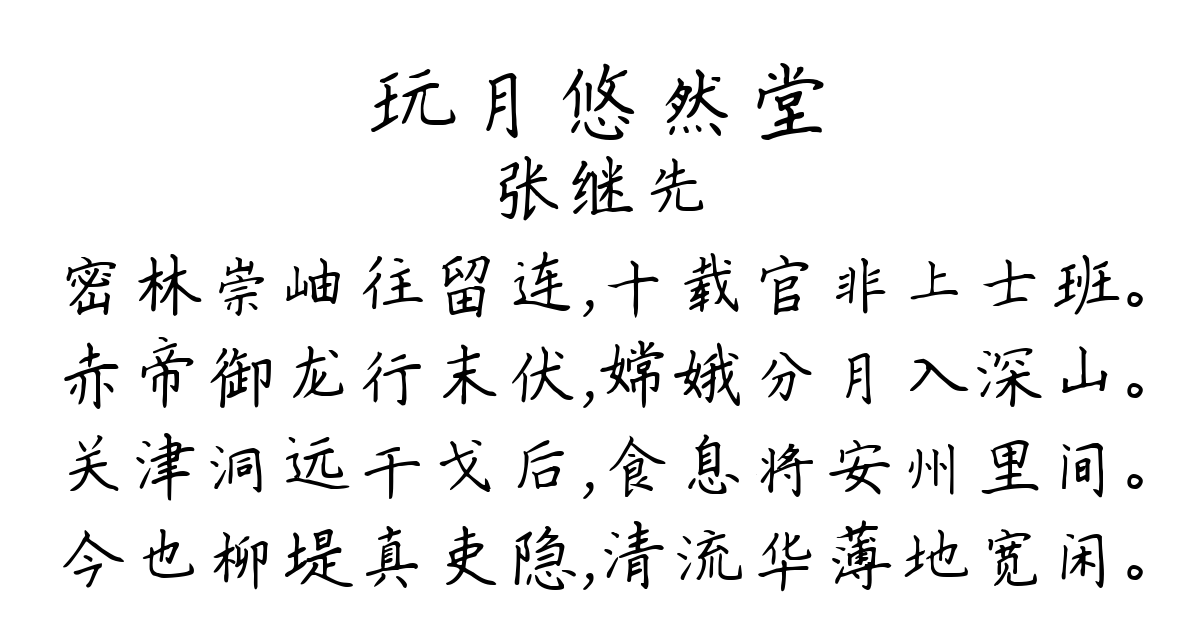 玩月悠然堂
张继先
密林崇岫往留连,十载官非上士班。
赤帝御龙行末伏,嫦娥分月入深山。
关津洞远干戈后,食息将安州里间。
今也柳堤真吏隐,清流华薄地宽闲。